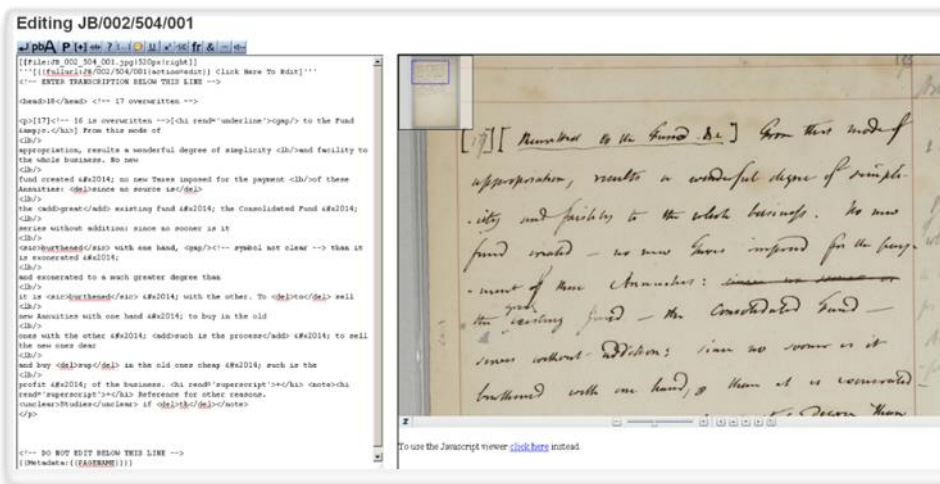 Editing JB/002/504/001
pbA P [+] ? U x² fr & —
[[File:JB_002_504_001.jpg|520px|right]]
'''[{{fullurl:JB/002/504/001|action=edit}} Click Here To Edit]'''
<!-- ENTER TRANSCRIPTION BELOW THIS LINE -->
<head>18</head> <!-- 17 overwritten -->
<p>[17]<!-- 16 is overwritten -->[<hi rend='underline'><gap/> to the Fund
&amp;c.</hi>] From this mode of
<lb/>
appropriation, results a wonderful degree of simplicity <lb/>and facility to
the whole business. No new
<lb/>
fund created &#x2014; no new Taxes imposed for the payment <lb/>of these
Annuities: <del>since no source is</del>
<lb/>
the <add>great</add> existing fund &#x2014; the Consolidated Fund &#x2014;
<lb/>
series without addition: since no sooner is it
<lb/>
<sic>burthened</sic> with one hand, <gap/><!-- symbol not clear --> than it
is exonerated &#x2014;
<lb/>
and exonerated to a much greater degree than
<lb/>
it is <sic>burthened</sic> &#x2014; with the other. To <del>to</del> sell
<lb/>
new Annuities with one hand &#x2014; to buy in the old
<lb/>
ones with the other &#x2014; <add>such is the process</add> &#x2014; to sell
the new ones dear
<lb/>
and buy <del>sup</del> in the old ones cheap &#x2014; such is the
<lb/>
profit &#x2014; of the business. <hi rend='superscript'>+</hi> <note><hi
rend='superscript'>+</hi> Reference for other reasons.
<unclear>Studies</unclear> if <del>th</del></note>
</p>
<!-- DO NOT EDIT BELOW THIS LINE -->
{{Metadata:{{PAGENAME}}}}
[17] [ to the Fund &c ] From this mode of
appropriation, results a wonderful degree of simpli-
-city and facility to the whole business. No new
fund created — no new Taxes imposed for the pay-
-ment of these Annuities: since no
great
the existing fund — the Consolidated Fund —
without addition: since no sooner is it
burthened with one hand, than it is exonerated
degree than
To use the Javascript viewer click here instead.